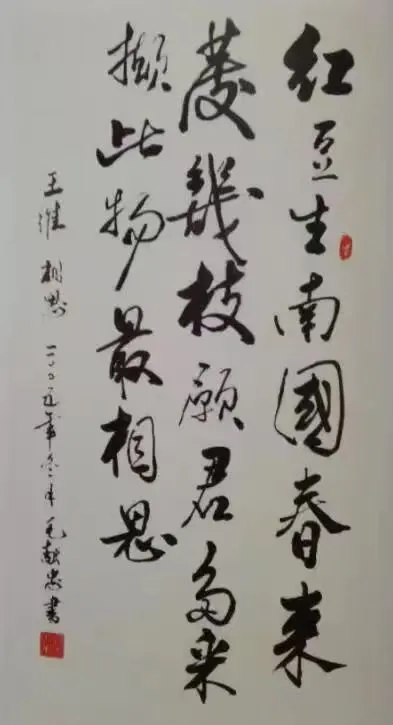 红豆生南國春来
發幾枝願君多采
擷此物最相思
王維 相思 二〇〇 年冬 毛献忠書